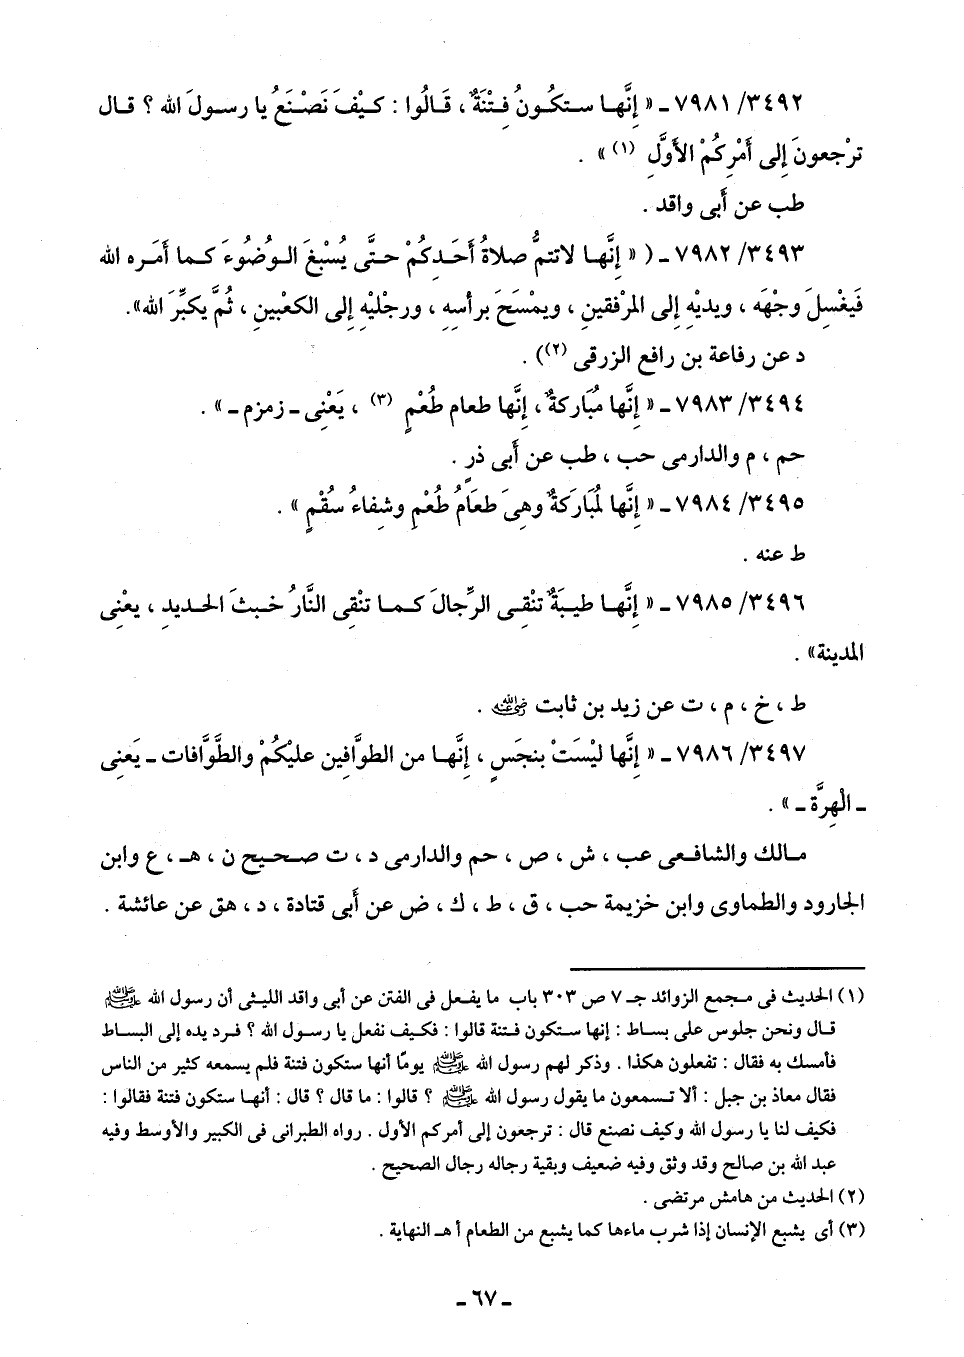 ٧٩٨١/٣٤٩٢ ـ « إِنَّها ستكُونُ فِتْنَةٌ ، قَالُوا : كيْفَ نَصْنَعُ يا رسولَ الله ؟ قال
ترْجعونَ إِلى أَمْرِكُمْ الأَوَّلِ (١) » .
طب عن أَبى واقد .
٧٩٨٢/٣٤٩٣ ـ ( « إِنَّها لاتتمُّ صلاةُ أَحَدِكُمْ حتَّى يُسْبِغَ الوُضُوءَ كما أَمَره الله
فَيغْسِلَ وجْهَه ، ويديْهِ إِلى المرْفقينِ ، ويمْسَحَ برأسِهِ ، ورجْليْهِ إِلى الكعْبينِ ، ثُمَّ يكبِّرَ الله».
د عن رفاعة بن رافع الزرقى (٢)) .
٧٩٨٣/٣٤٩٤ ـ « إِنَّها مُبَاركةٌ ، إِنَّها طعام طُعْمٍ (٣) ، يَعْنِى ـ زمزم ـ » .
حم ، م والدارمى حب ، طب عن أَبى ذرٍ .
٧٩٨٤/٣٤٩٥ ـ « إِنَّها لمُبَارَكةٌ وهىَ طعَامُ طُعْمٍ وشفاءُ سُقْمٍ » .
ط عنه .
٧٩٨٥/٣٤٩٦ ـ « إِنَّها طيبَةٌ تنْقِى الرِّجالَ كما تنْقِى النَّارُ خبثَ الحديدِ ، يعْنِى
المدينة» .
ط ، خ ، م ، ت عن زيد بن ثابت رضي الله عنه .
٧٩٨٦/٣٤٩٧ ـ « إِنَّها ليْسَتْ بنجَسٍ ، إِنَّها من الطوَّافِين عليْكُمْ والطَّوَّافات ـ يَعنِى
ـ الْهِرَّة ـ » .
مالك والشافعى عب ، ش ، ص ، حم والدارمى د ، ت صحيح ن ، هـ ، ع وابن
الجارود والطماوى وابن خزيمة حب ، ق ، ط ، ك ، ض عن أَبى قتادة ، د ، هق عن عائشة .
(١) الحديث فى مجمع الزوائد جـ ٧ ص ٣٠٣ باب ما يفعل فى الفتن عن أبى واقد الليثى أن رسول الله ﷺ
قال ونحن جلوس على بساط : إنها ستكون فتنة قالوا : فكيف نفعل يا رسول الله ؟ فرد يده إلى البساط
فأمسك به فقال : تفعلون هكذا . وذكر لهم رسول الله ﷺ يومًا أنها ستكون فتنة فلم يسمعه كثير من الناس
فقال معاذ بن جبل : ألا تسمعون ما يقول رسول الله ﷺ ؟ قالوا : ما قال ؟ قال : أنها ستكون فتنة فقالوا :
فكيف لنا يا رسول الله وكيف نصنع قال : ترجعون إلى أمركم الأول . رواه الطبرانى فى الكبير والأوسط وفيه
عبد الله بن صالح وقد وثق وفيه ضعيف وبقية رجاله رجال الصحيح .
(٢) الحديث من هامش مرتضى .
(٣) أى يشبع الإنسان إذا شرب ماءها كما يشبع من الطعام أ هـ النهاية .
ـ ٦٧ ـ